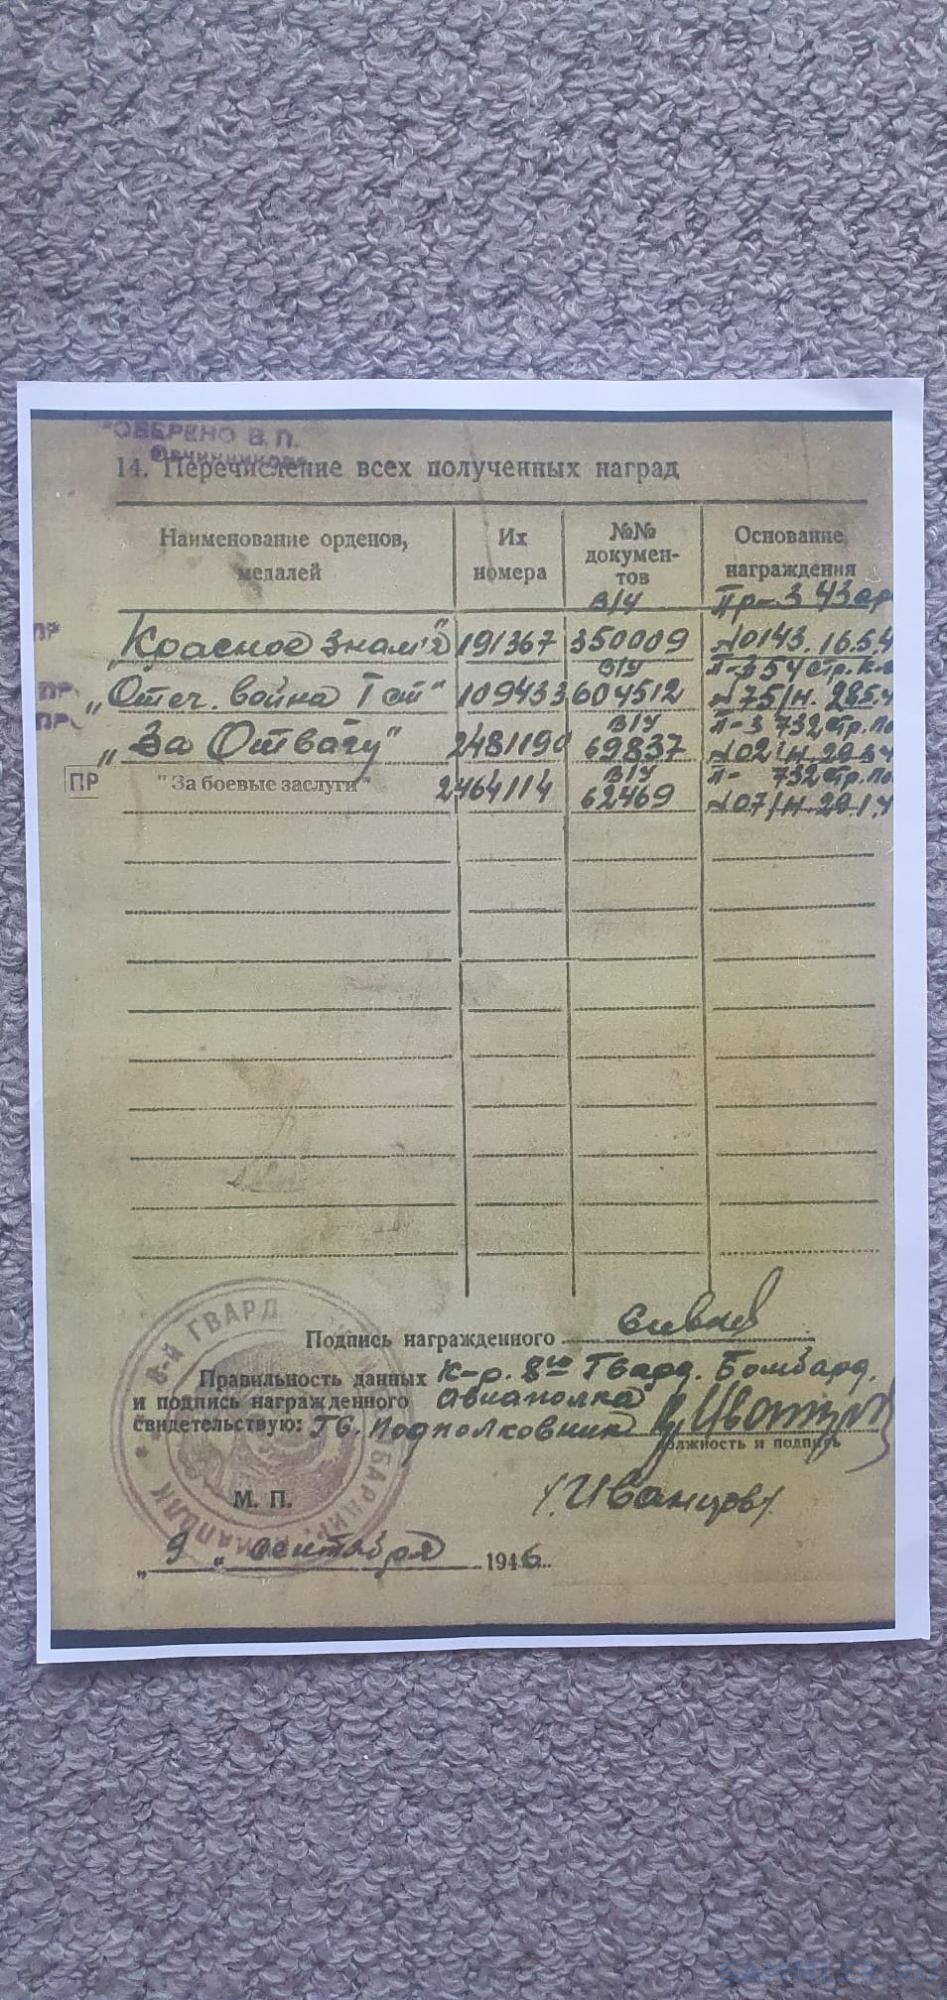 ОВЕРЕНО В. П.
Овчинникова
14. Перечисление всех полученных наград
Наименование орденов, медалей
Их номера
№№ документов
Основание награждения
ПР
"Красное Знамя"
191367
В/У 350009
Пр-З 43 ср
№0143. 16.5.4
ПР
"Отеч. война I ст"
109433
В/У 604512
П-З 54 стр. к-
№75/н. 28.5.4
ПР
"За Отвагу"
2481190
В/У 69837
П-З 732 стр. по
№02/н. 29.
ПР
"За боевые заслуги"
2464114
В/У 62469
П- 732 стр. по
№07/н. 29.1.4
Подпись награжденного
Правильность данных К-р. 8го Гвард. Бомбард.
и подпись награжденного Авиаполка
свидетельствую: Гв. Подполковник
должность и подпись
М. П.
/Иванцов/
„ 9 „ сентября 1946
8-й ГВАРД БАРДИР. АВИАПОЛК